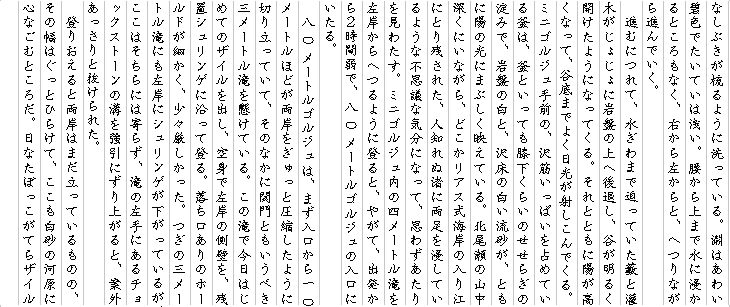 なしぶきが梳るように洗っている。淵はあわい
碧色でたいていは浅い。腰から上まで水に浸か
るところもなく、右から左からと、へつりなが
ら進んでいく。
　進むにつれて、水ぎわまで迫っていた藪と灌
木がじょじょに岩盤の上へ後退し、谷が明るく
開けたようになってくる。それとともに陽が高
くなって、谷底までよく日光が射しこんでくる。
ミニゴルジュ手前の、沢筋いっぱいを占めてい
る釜は、釜といっても膝下くらいのせせらぎの
淀みで、岩盤の白と、沢床の白い流砂が、とも
に陽の光にまぶしく映えている。北尾瀬の山中
深くにいながら、どこかリアス式海岸の入り江
にとり残された、人知れぬ渚に両足を浸してい
るような不思議な気分になって、思わずあたり
を見わたす。ミニゴルジュ内の四メートル滝を
左岸からへつるように登ると、やがて、出発か
ら２時間弱で、八〇メートルゴルジュの入口に
いたる。
　八〇メートルゴルジュは、まず入口から一〇
メートルほどが両岸をぎゅっと圧縮したように
切り立っていて、そのなかに関門ともいうべき
三メートル滝を懸けている。この滝で今日はじ
めてのザイルを出し、空身で左岸の側壁を、残
置シュリンゲに沿って登る。落ち口ありのホー
ルドが細かく、少々厳しかった。つぎの三メー
トル滝にも左岸にシュリンゲが下がっているが、
ここはそちらには寄らず、滝の左手にあるチョ
ックストーンの溝を強引にずり上がると、案外
あっさりと抜けられた。
　登りおえると両岸はまだ立っているものの、
その幅はぐっとひらけて、ここも白砂の河原に
心なごむところだ。日なたぼっこがてらザイル